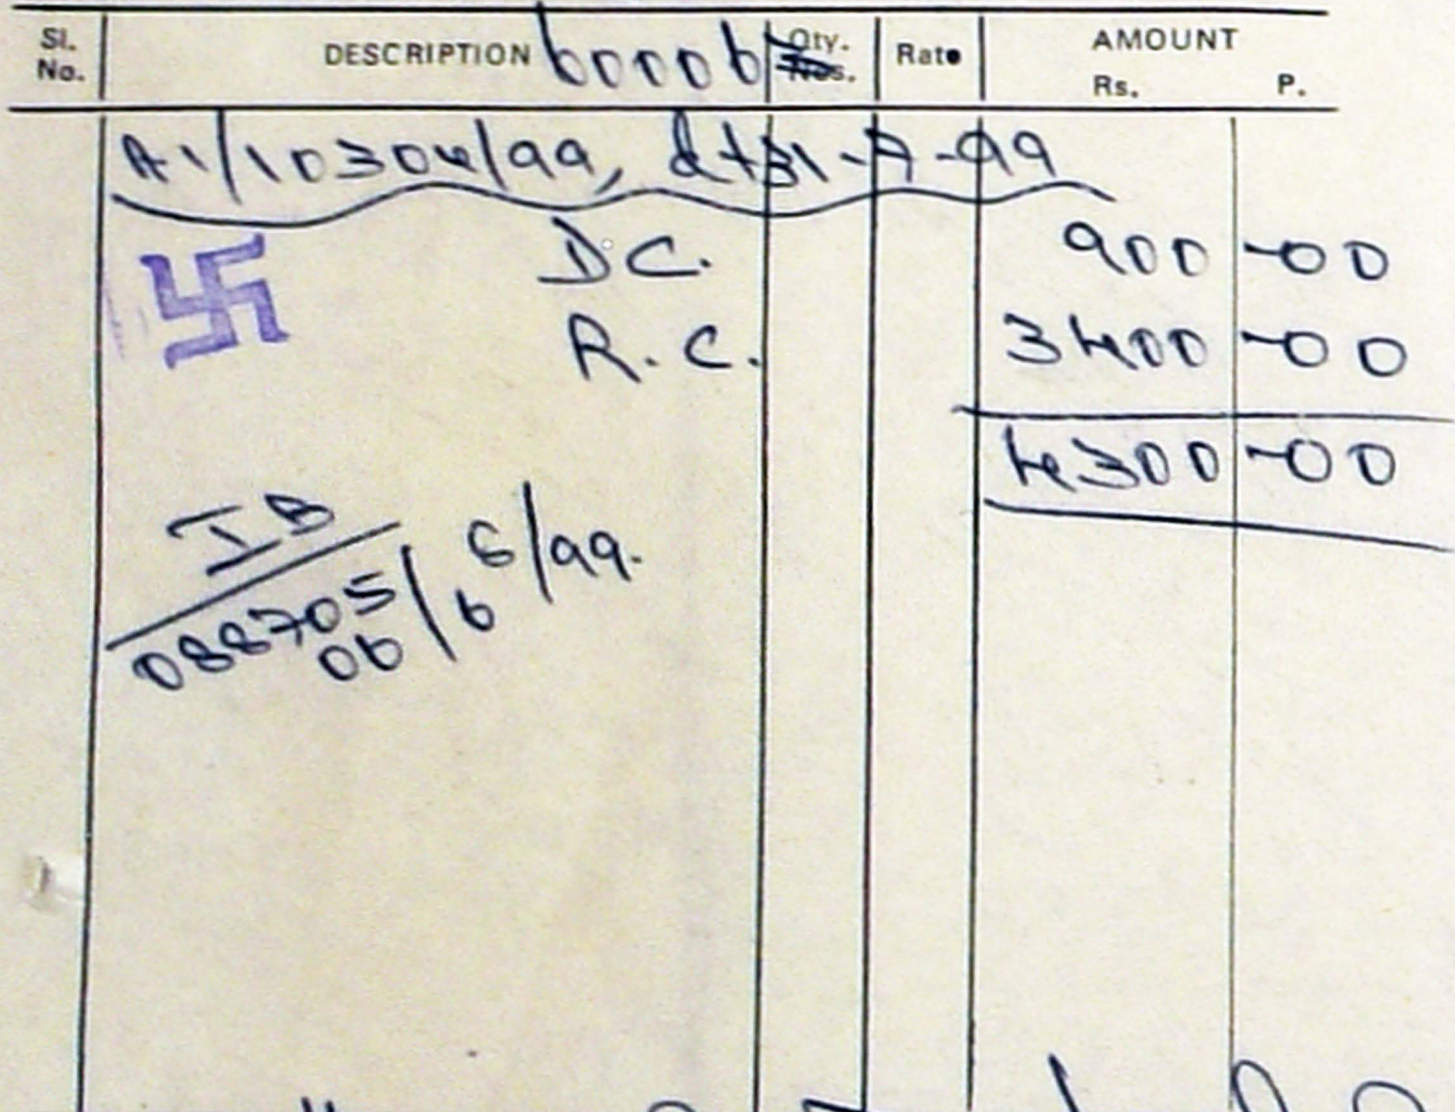 Sl. No. DESCRIPTION 6000 6 Qty. Nos. Rate AMOUNT Rs. P.
A1/10304/99, dt 31-7-99
D.C. 900-00
R.C. 3400-00
4300-00
IB
088705/6 6/99.
06